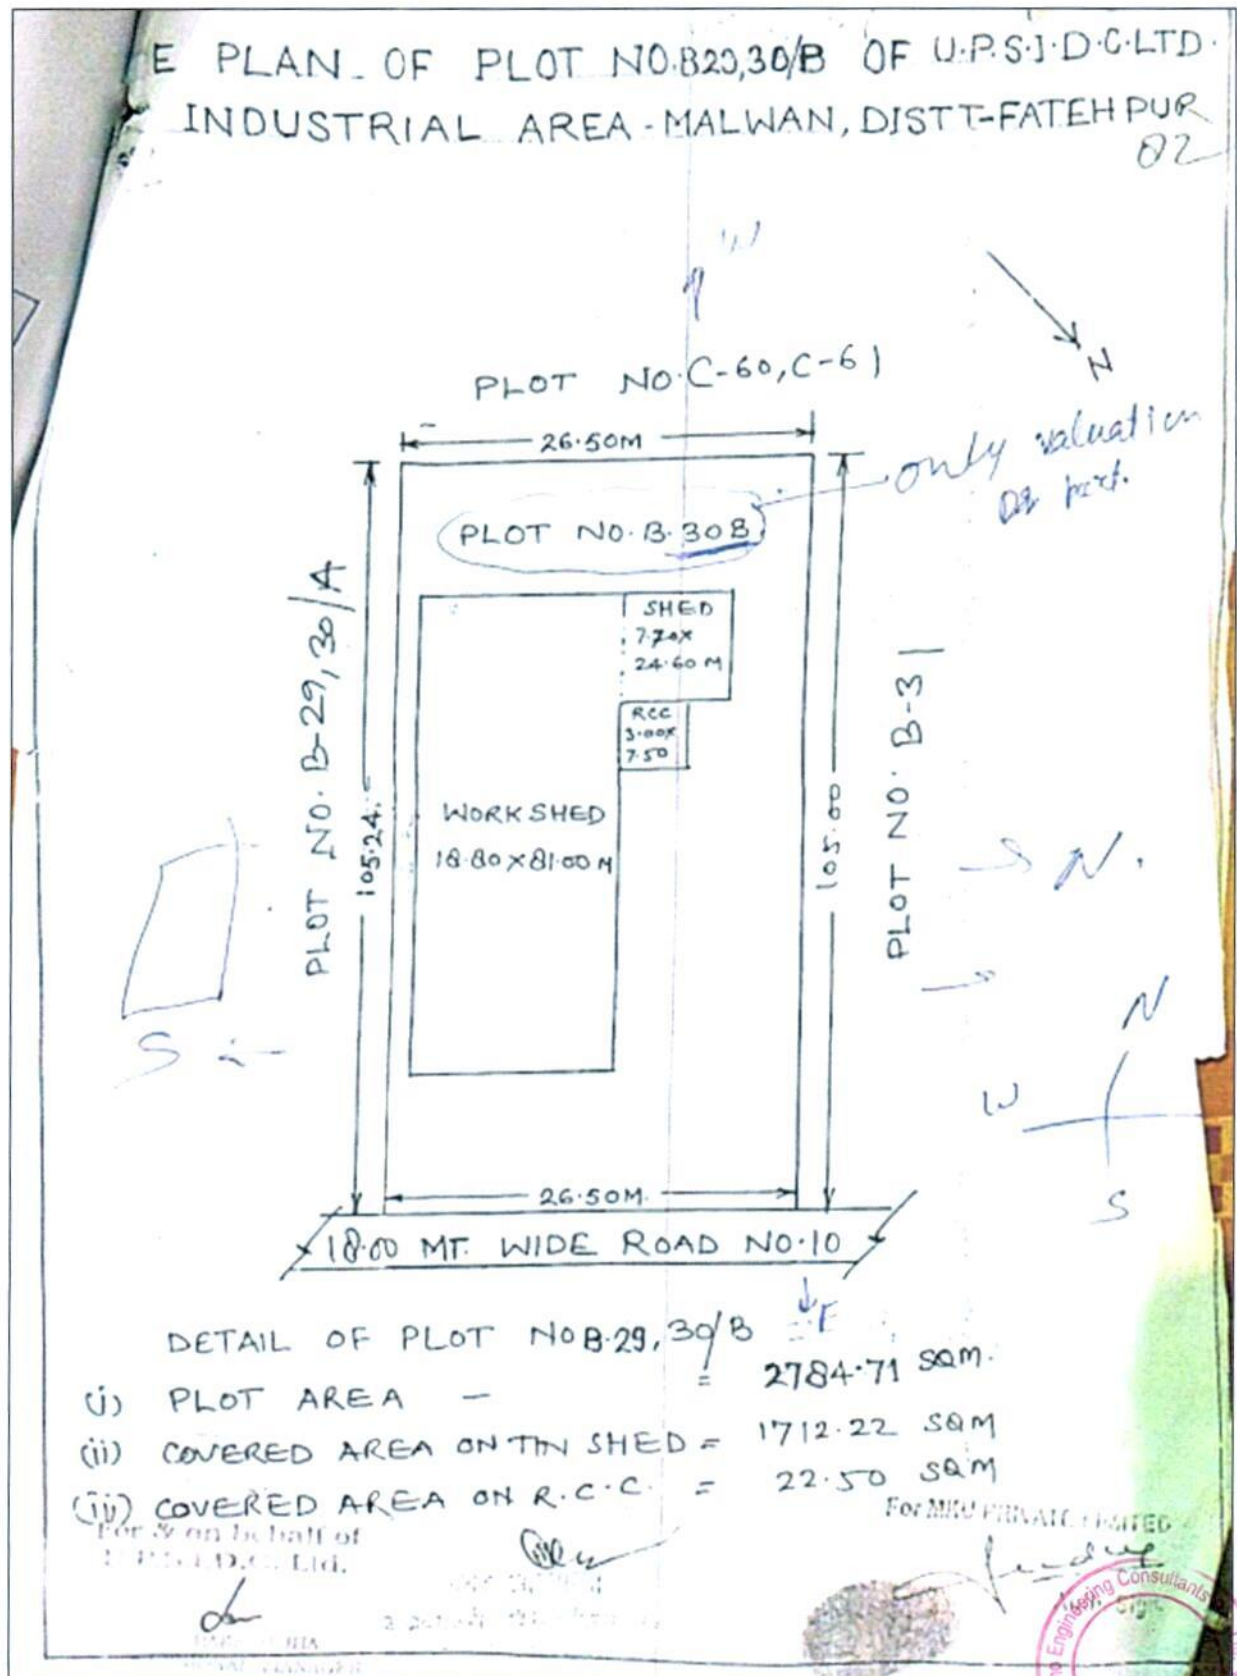 E PLAN OF PLOT NO.B29,30/B OF U.P.S.I.D.C.LTD.
INDUSTRIAL AREA-MALWAN, DISTT-FATEHPUR
02
W
N
PLOT NO.C-60,C-61
26.50M
only valuation
PLOT NO.B.30B
PLOT NO.B-29,30/A
105.24
SHED
7.70X
24.60 M
RCC
3.00X
7.50
WORKSHED
18.80X81.00 M
105.00
PLOT NO. B-31
N.
S
N
W
S
26.50M.
18.00 MT. WIDE ROAD NO.10
E
DETAIL OF PLOT NO B.29,30/B
(i) PLOT AREA - = 2784.71 SQM.
(ii) COVERED AREA ON TIN SHED = 1712.22 SQM
(iii) COVERED AREA ON R.C.C. = 22.50 SQM
For & on behalf of
U.P.S.I.D.C. Ltd.
For MKU PRIVATE LIMITED
Engineering Consultants